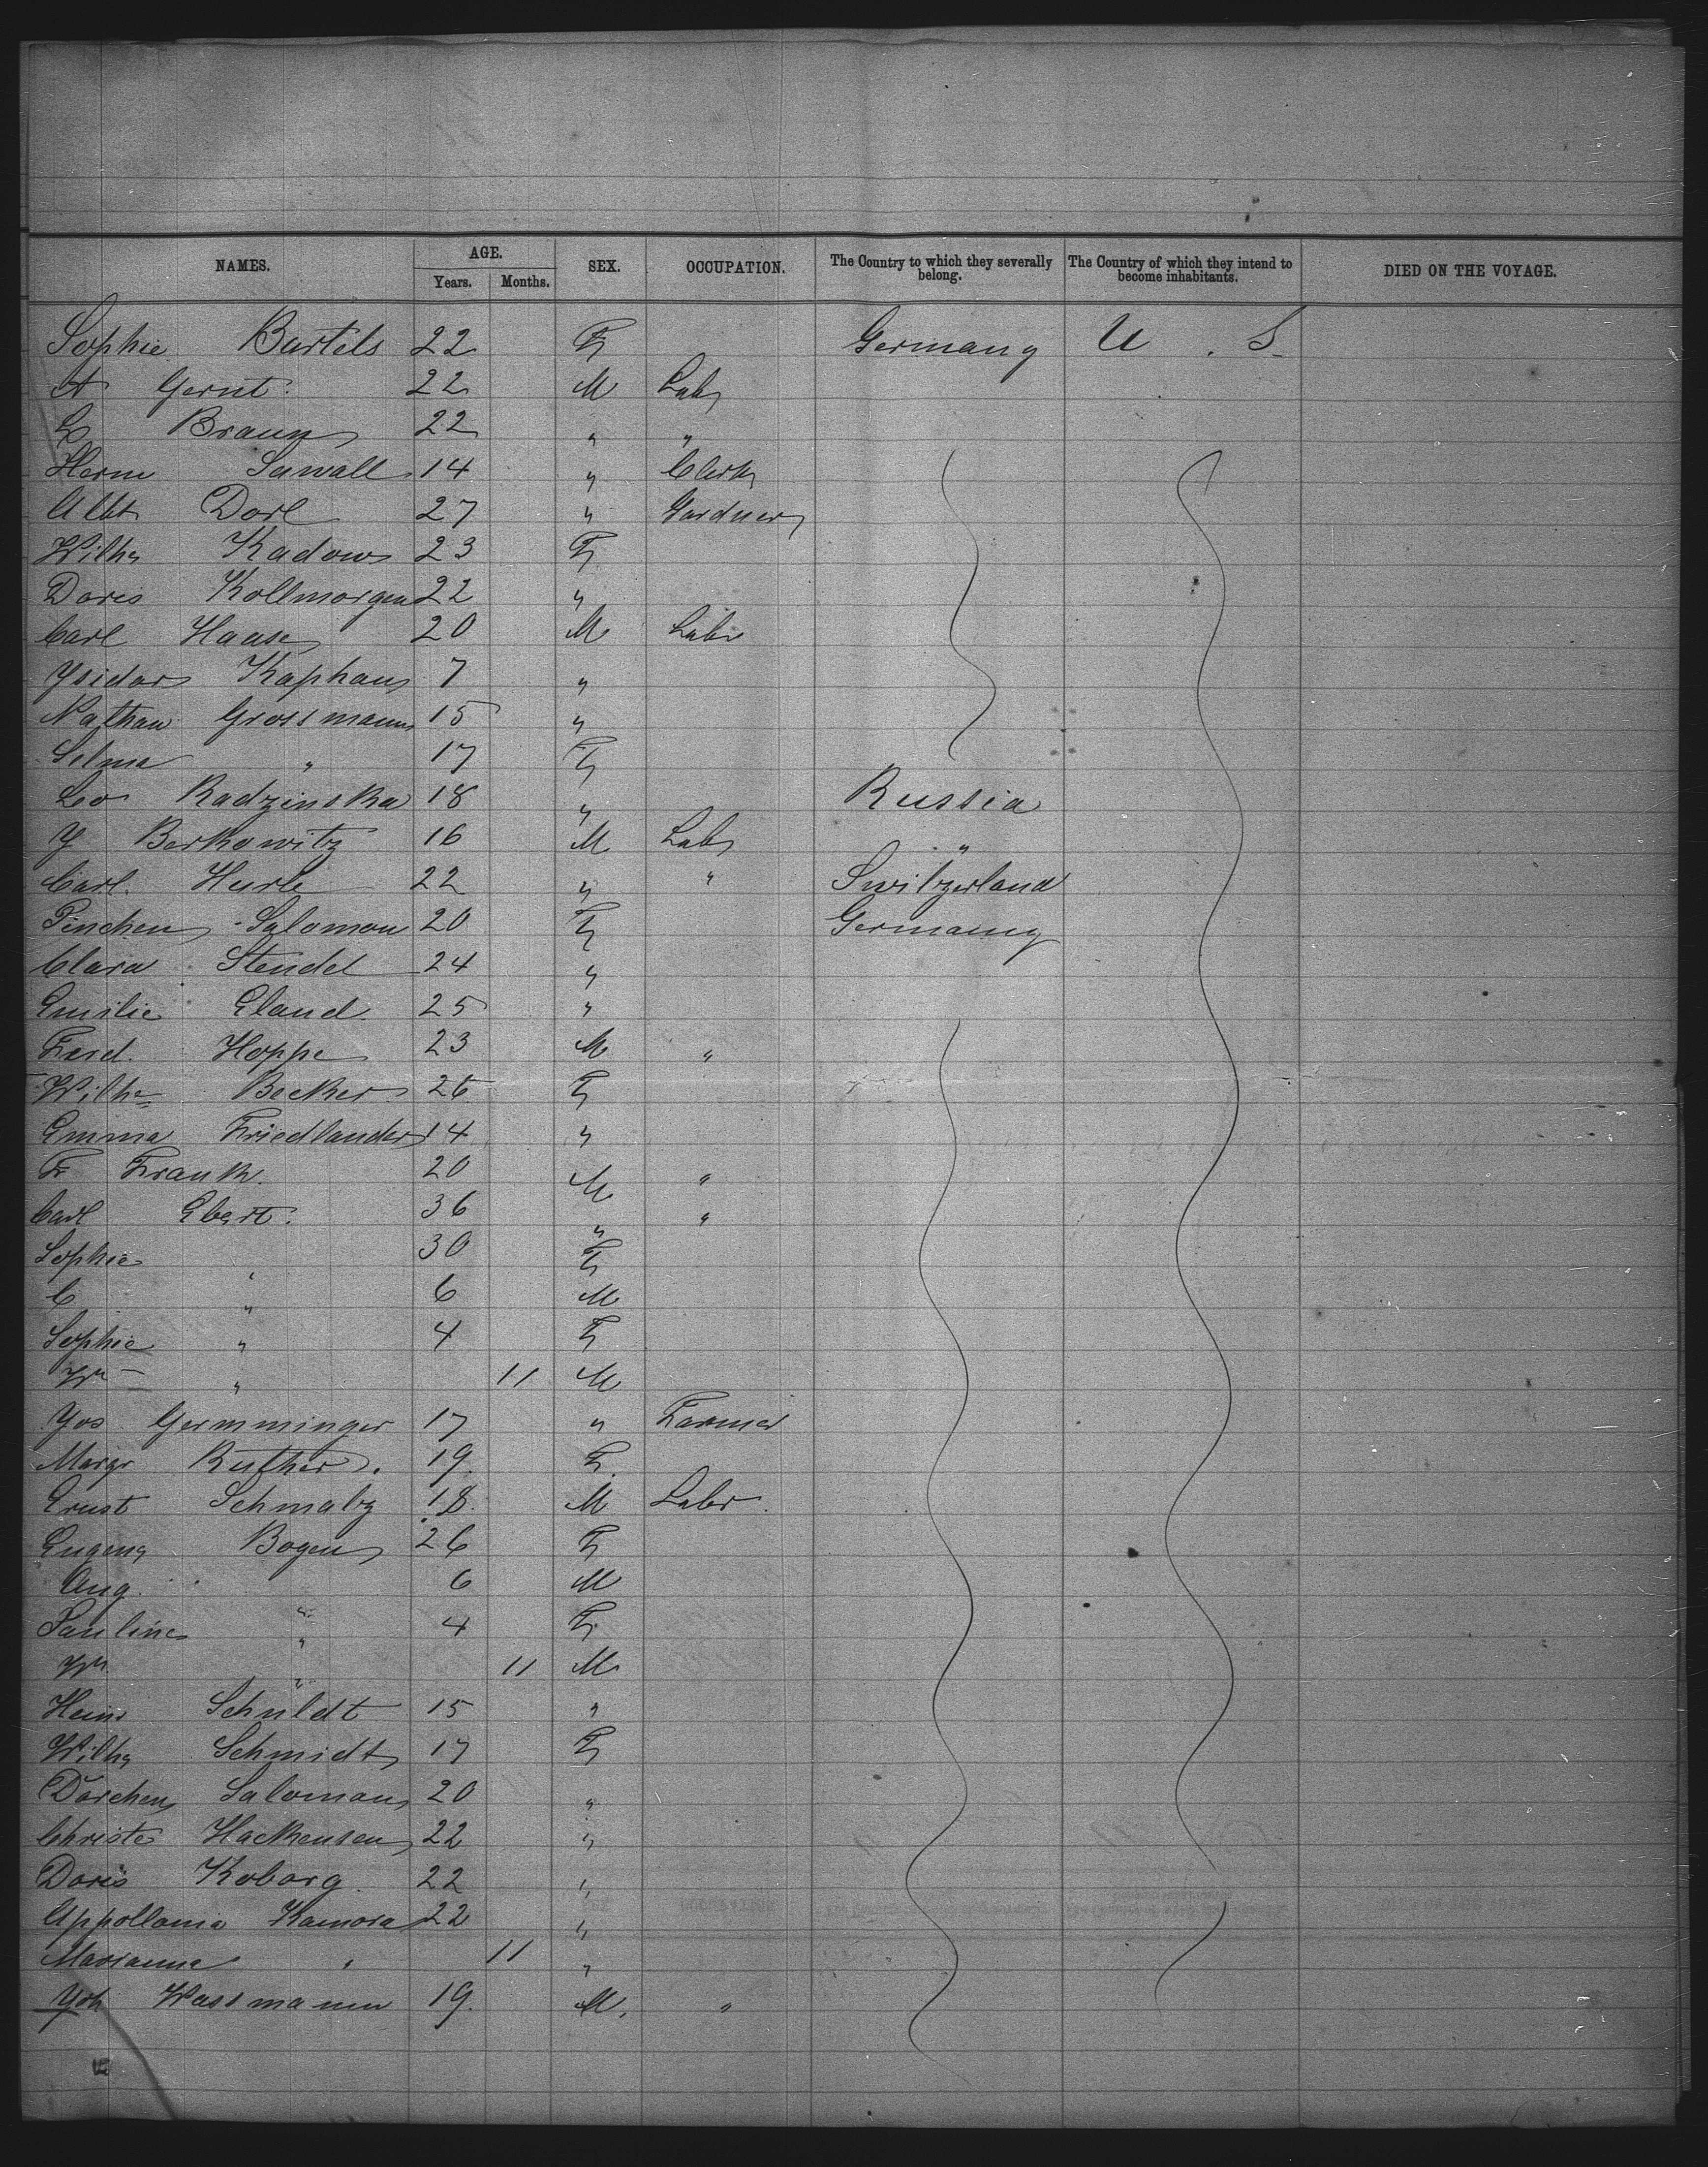 NAMES. AGE. Years. Months. SEX. OCCUPATION. The Country to which they severally belong. The Country of which they intend to become inhabitants. DIED ON THE VOYAGE.
Sophie Bartels 22 F Germany U . S
A Gernt. 22 M Labr
L Braun 22 " "
Herm Sawall 14 " Clerk
Albt Dorl 27 " Gardner
Wilhe Kadow 23 F
Doris Kollmorgen 22 "
Carl Haase 20 M Labr
Ysidor Kaphan 7 "
Nathan Grossmann 15 "
Selma " 17 F
Leo Radzinska 18 " Russia
Y Berkowitz 16 M Labr "
Carl Hurle 22 " " Switzerland
Pinchen Salomon 20 F Germany
Clara Stendel 24 "
Emilie Gland 25 "
Ferd. Hoppe 23 M "
Wilhe Becker 26 F
Emma Friedlander 14 "
Fr Frank. 20 M "
Carl Ebert. 36 " "
Sophie " 30 F
C " 6 M
Sophie " 4 F
Wm " 11 M
Yos Germminger 17 " Farmer
Margr Ruther. 19. F.
Ernst Schmalz 18. M Labr.
Eugene Bogen 26 F
Aug. " 6 M
Pauline " 4 F
Wm " 11 M
Heinr Schuldt 15 "
Wilhe Schmidt 17 F
Dorchen Salomon 20 "
Christe Hackensen 22 "
Doris Koborg 22 "
Appollonia Kamora 22 "
Marianna " 11 "
Yoh Wassmann 19. M. "